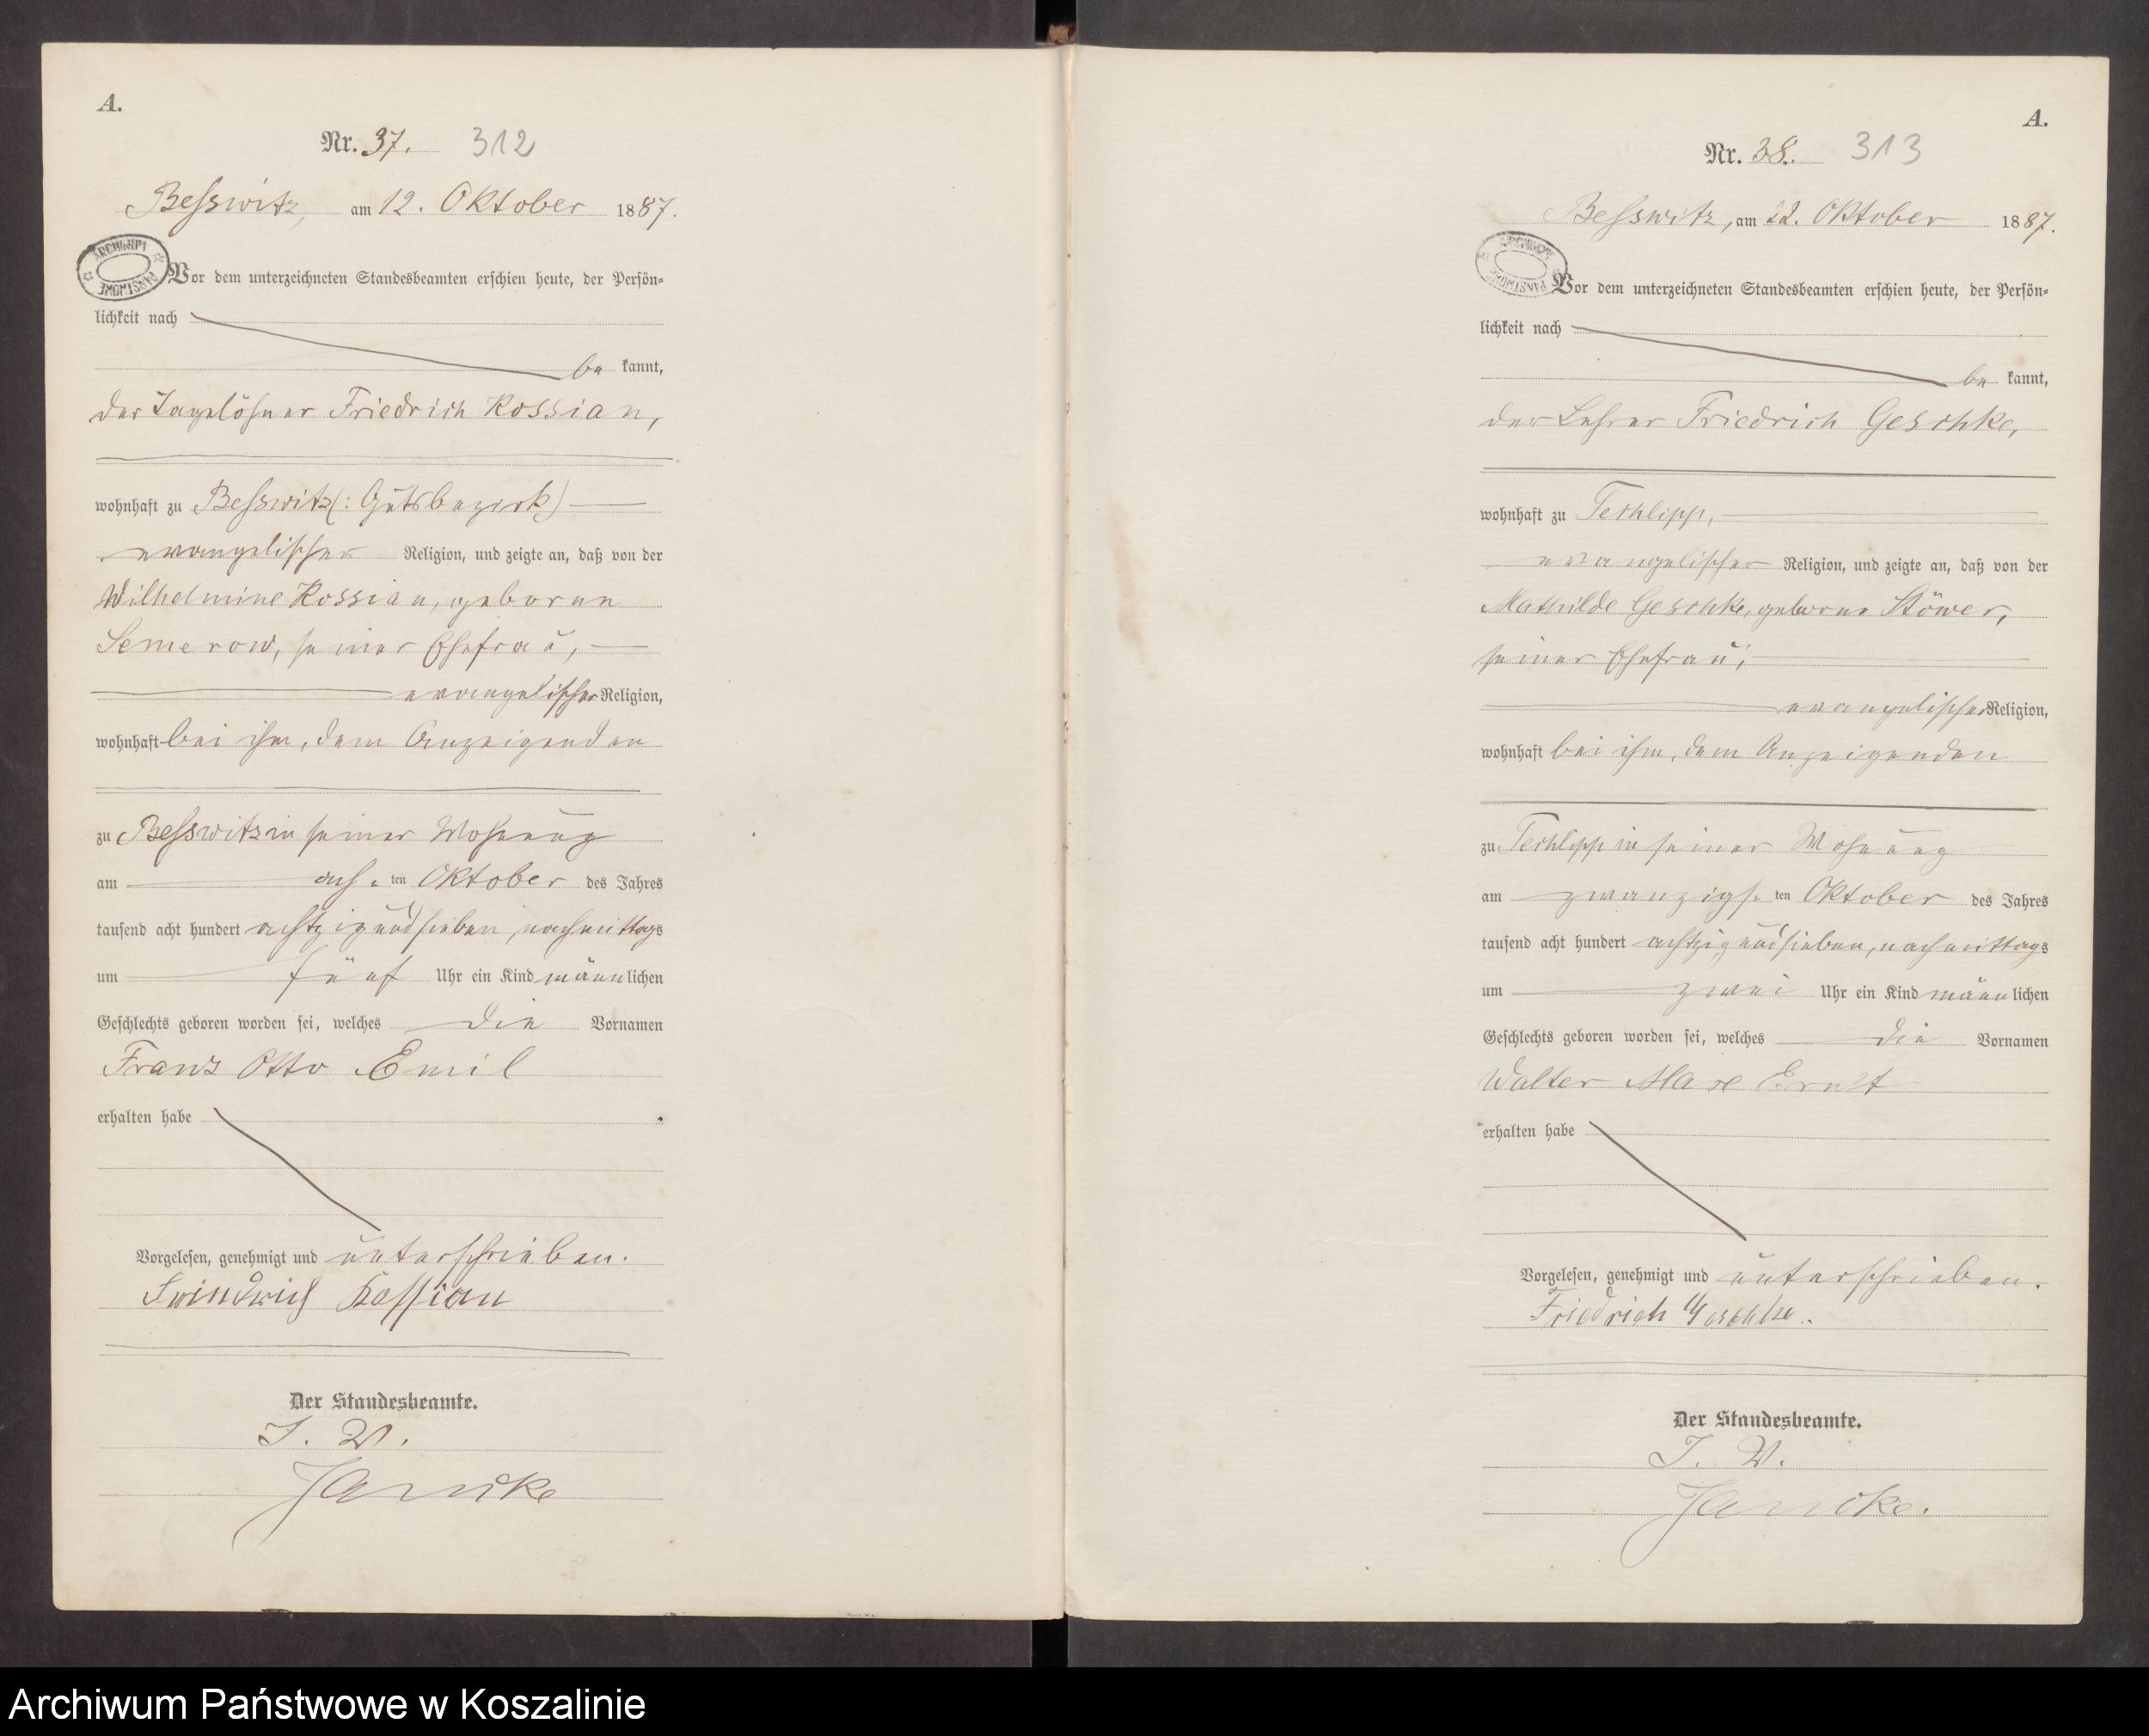 A.
Nr. 37. 312
Besswitz, am 12. Oktober 1887.
ARCHIWUM PAŃSTWOWE
Vor dem unterzeichneten Standesbeamten erschien heute, der Persön-
lichkeit nach
be kannt,
der Tagelöhner Friedrich Kossian,
wohnhaft zu Besswitz (: Gutsbezirk)
evangelischer Religion, und zeigte an, daß von der
Wilhelmine Kossian, geborne
Semerow, seiner Ehefrau,
evangelischer Religion,
wohnhaft bei ihm, dem Anzeigenden
zu Besswitz in seiner Wohnung
am ach ten Oktober des Jahres
tausend acht hundert achtzig und sieben, nachmittags
um fünf Uhr ein Kind männlichen
Geschlechts geboren worden sei, welches die Vornamen
Franz Otto Emil
erhalten habe
Vorgelesen, genehmigt und unterschrieben.
Friedrich Kossian
Der Standesbeamte.
J. V.
Jancke
A.
Nr. 38. 313
Besswitz, am 22. Oktober 1887.
ARCHIWUM PAŃSTWOWE
Vor dem unterzeichneten Standesbeamten erschien heute, der Persön-
lichkeit nach
be kannt,
der Lehrer Friedrich Geschke,
wohnhaft zu Techlipp,
evangelischer Religion, und zeigte an, daß von der
Mathilde Geschke, geborne Stöwer,
seiner Ehefrau,
evangelischer Religion,
wohnhaft bei ihm, dem Anzeigenden
zu Techlipp in seiner Wohnung
am zwanzigs ten Oktober des Jahres
tausend acht hundert achtzig und sieben, nachmittags
um zwei Uhr ein Kind männlichen
Geschlechts geboren worden sei, welches die Vornamen
Walter Max Ernst
erhalten habe
Vorgelesen, genehmigt und unterschrieben.
Friedrich Geschke.
Der Standesbeamte.
J. V.
Jancke.
Archiwum Państwowe w Koszalinie